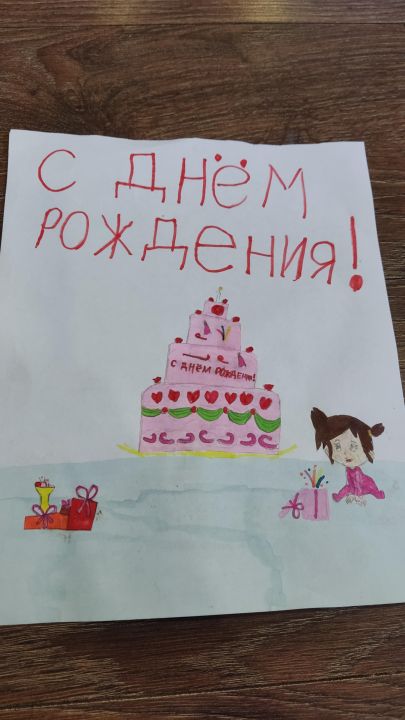 С ДНЁМ
РОЖДЕНИЯ!
С ДНЁМ РОЖДЕНИЯ!